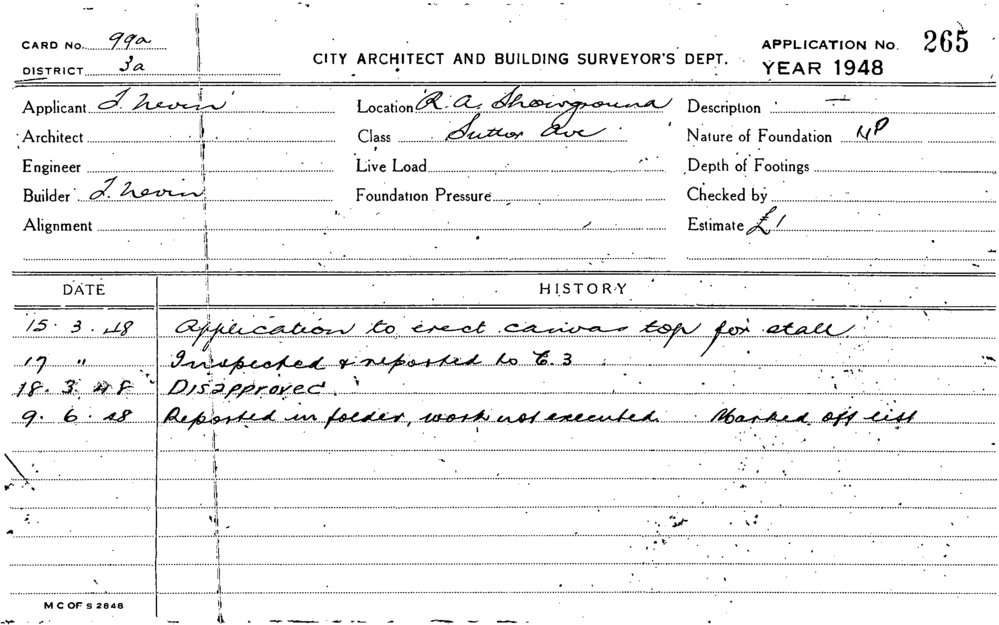 CARD No. 99a
DISTRICT 3a
CITY ARCHITECT AND BUILDING SURVEYOR'S DEPT.
APPLICATION No. 265
YEAR 1948
Applicant J. Nevin Location R. A. Showground Description —
Architect Class Suttor Ave Nature of Foundation NP
Engineer Live Load Depth of Footings
Builder J. Nevin Foundation Pressure Checked by
Alignment Estimate £1
DATE HISTORY
15. 3. 48 Application to erect canvas top for stall
17 " Inspected & reported to C.3
18. 3. 48 Disapproved.
9. 6. 48 Reported in folder, work not executed. Marked off list
M C OF S 2848